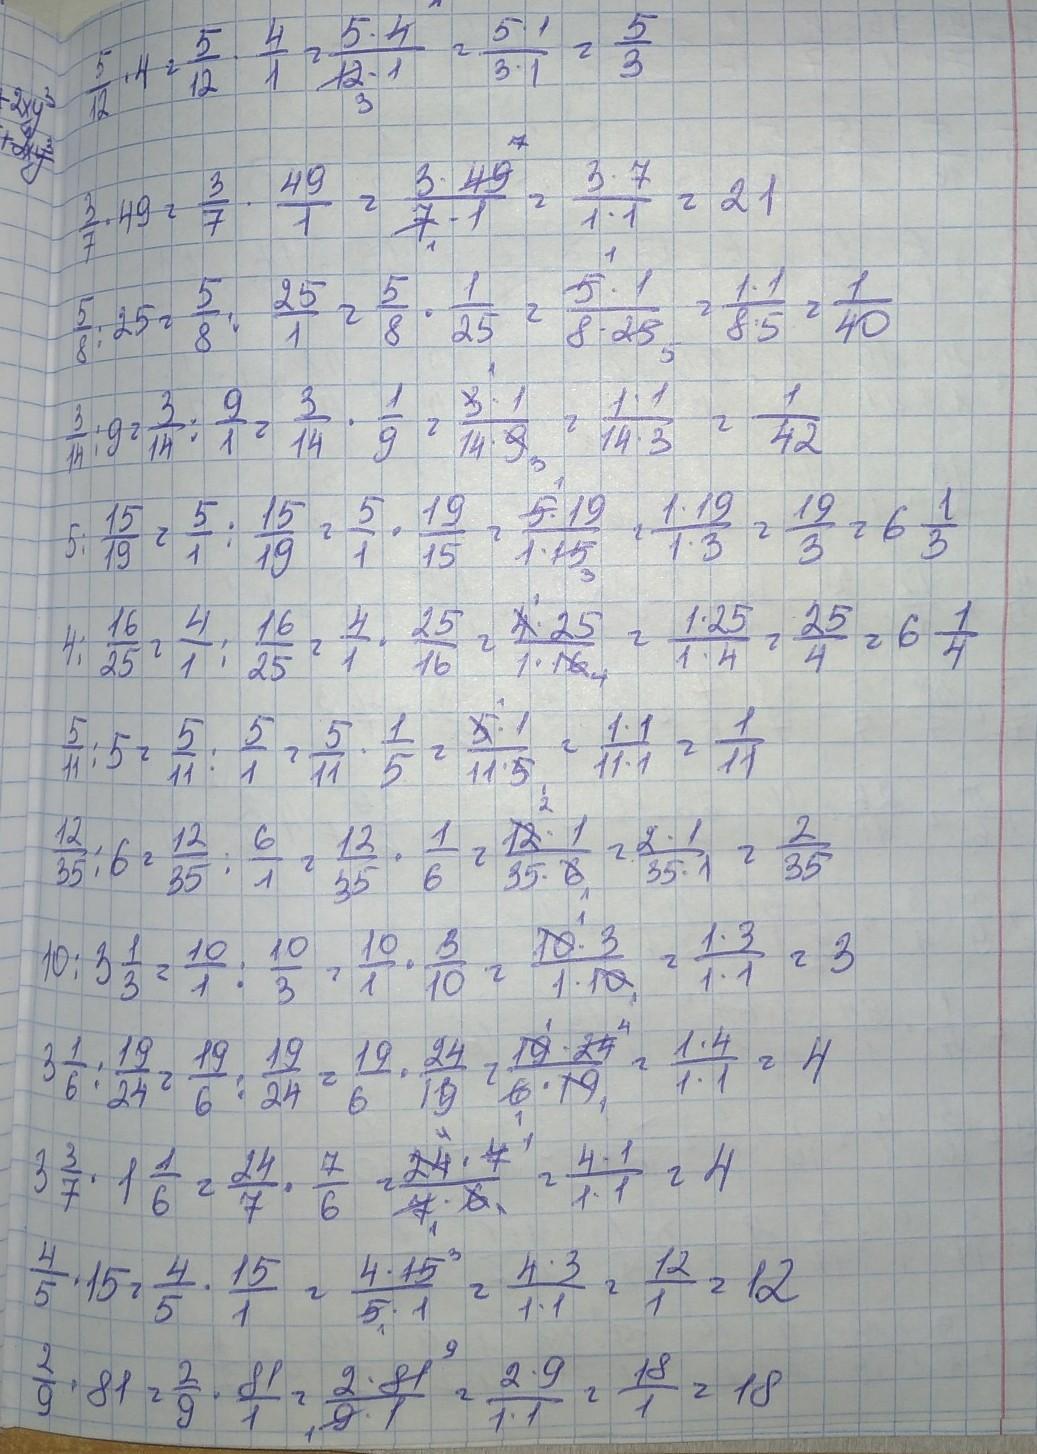 5/12 · 4 = 5/12 · 4/1 = 5·4/12·1 3 = 5·1/3·1 = 5/3
3/7 · 49 = 3/7 · 49/1 = 3·49 7/7·1 1 = 3·7/1·1 = 21
5/8 : 25 = 5/8 : 25/1 = 5/8 · 1/25 = 5·1 1/8·25 5 = 1·1/8·5 = 1/40
3/14 : 9 = 3/14 : 9/1 = 3/14 · 1/9 = 3·1 1/14·9 3 = 1·1/14·3 = 1/42
5 : 15/19 = 5/1 : 15/19 = 5/1 · 19/15 = 5·19 1/1·15 3 = 1·19/1·3 = 19/3 = 6 1/3
4 : 16/25 = 4/1 : 16/25 = 4/1 · 25/16 = 4·25 1/1·16 4 = 1·25/1·4 = 25/4 = 6 1/4
5/11 : 5 = 5/11 : 5/1 = 5/11 · 1/5 = 5·1 1/11·5 1 = 1·1/11·1 = 1/11
12/35 : 6 = 12/35 : 6/1 = 12/35 · 1/6 = 12·1 2/35·6 1 = 2·1/35·1 = 2/35
10 : 3 1/3 = 10/1 : 10/3 = 10/1 · 3/10 = 10·3 1/1·10 1 = 1·3/1·1 = 3
3 1/6 : 19/24 = 19/6 : 19/24 = 19/6 · 24/19 = 19·24 1 4/6·19 1 1 = 1·4/1·1 = 4
3 3/7 · 1 1/6 = 24/7 · 7/6 = 24·7 4 1/7·6 1 1 = 4·1/1·1 = 4
4/5 · 15 = 4/5 · 15/1 = 4·15 3/5·1 1 = 4·3/1·1 = 12/1 = 12
2/9 · 81 = 2/9 · 81/1 = 2·81 9/9·1 1 = 2·9/1·1 = 18/1 = 18